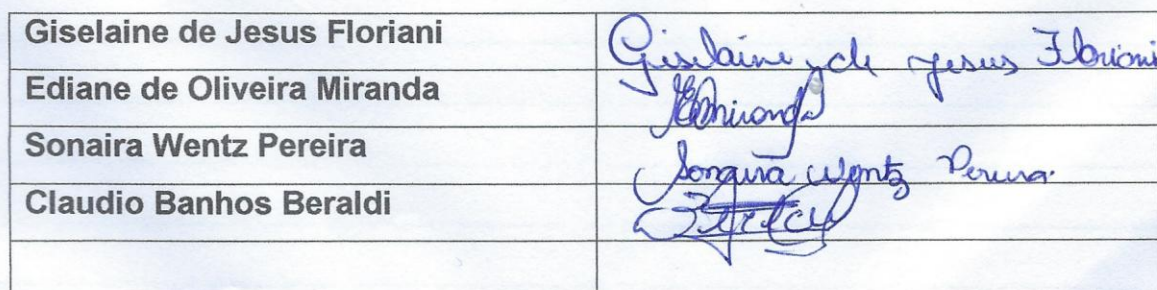 Giselaine de Jesus Floriani Giselaine de Jesus Floriani
Ediane de Oliveira Miranda EMiranda
Sonaira Wentz Pereira Sonaira Wentz Pereira
Claudio Banhos Beraldi